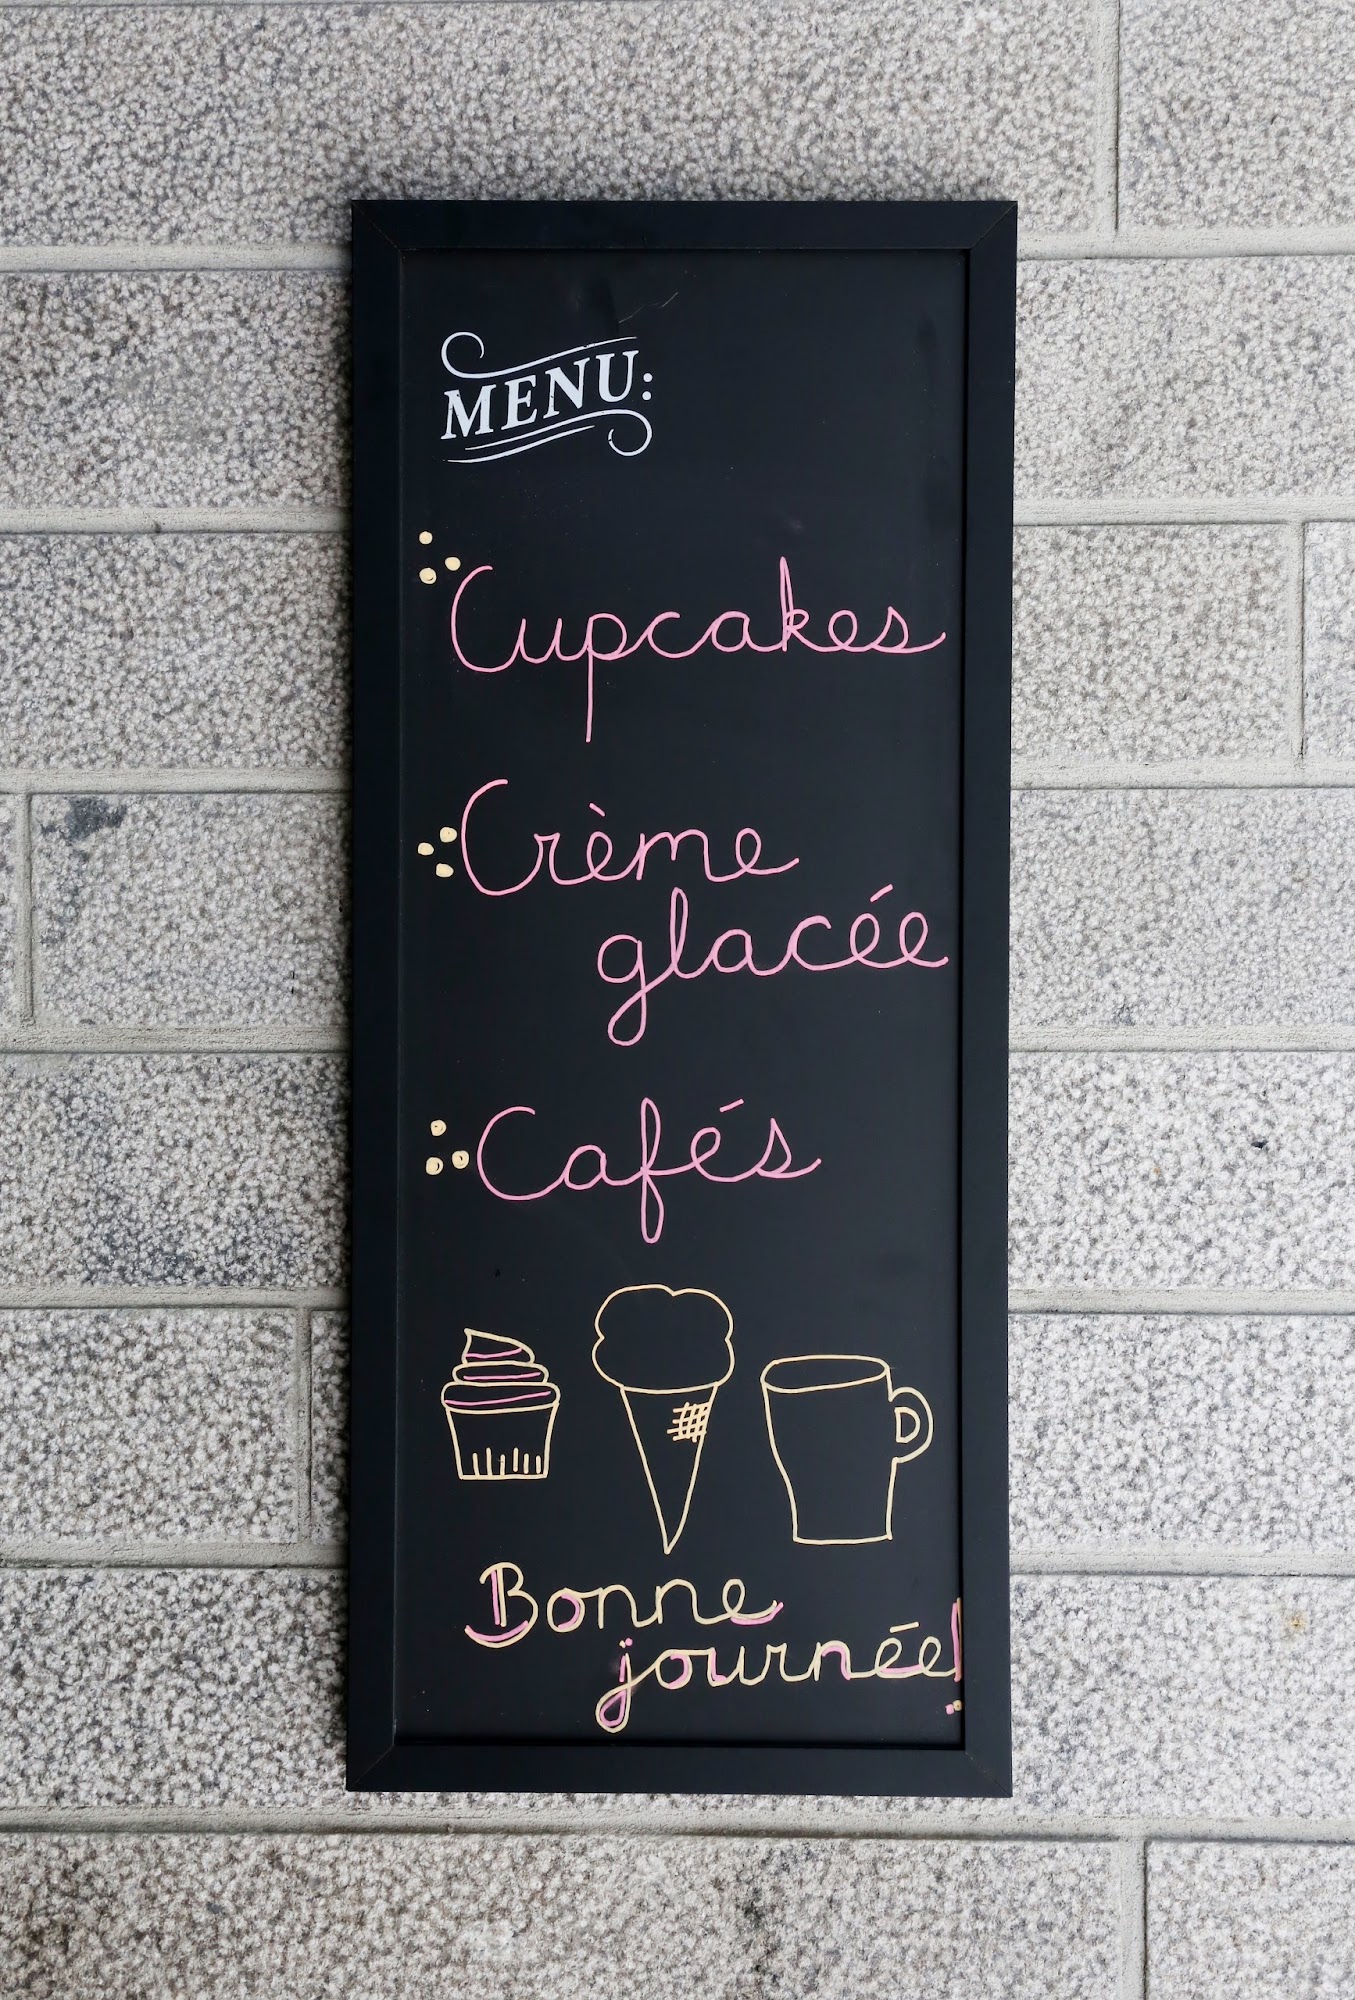 MENU:
Cupcakes
Crème
glacée
Cafés
Bonne
journée!